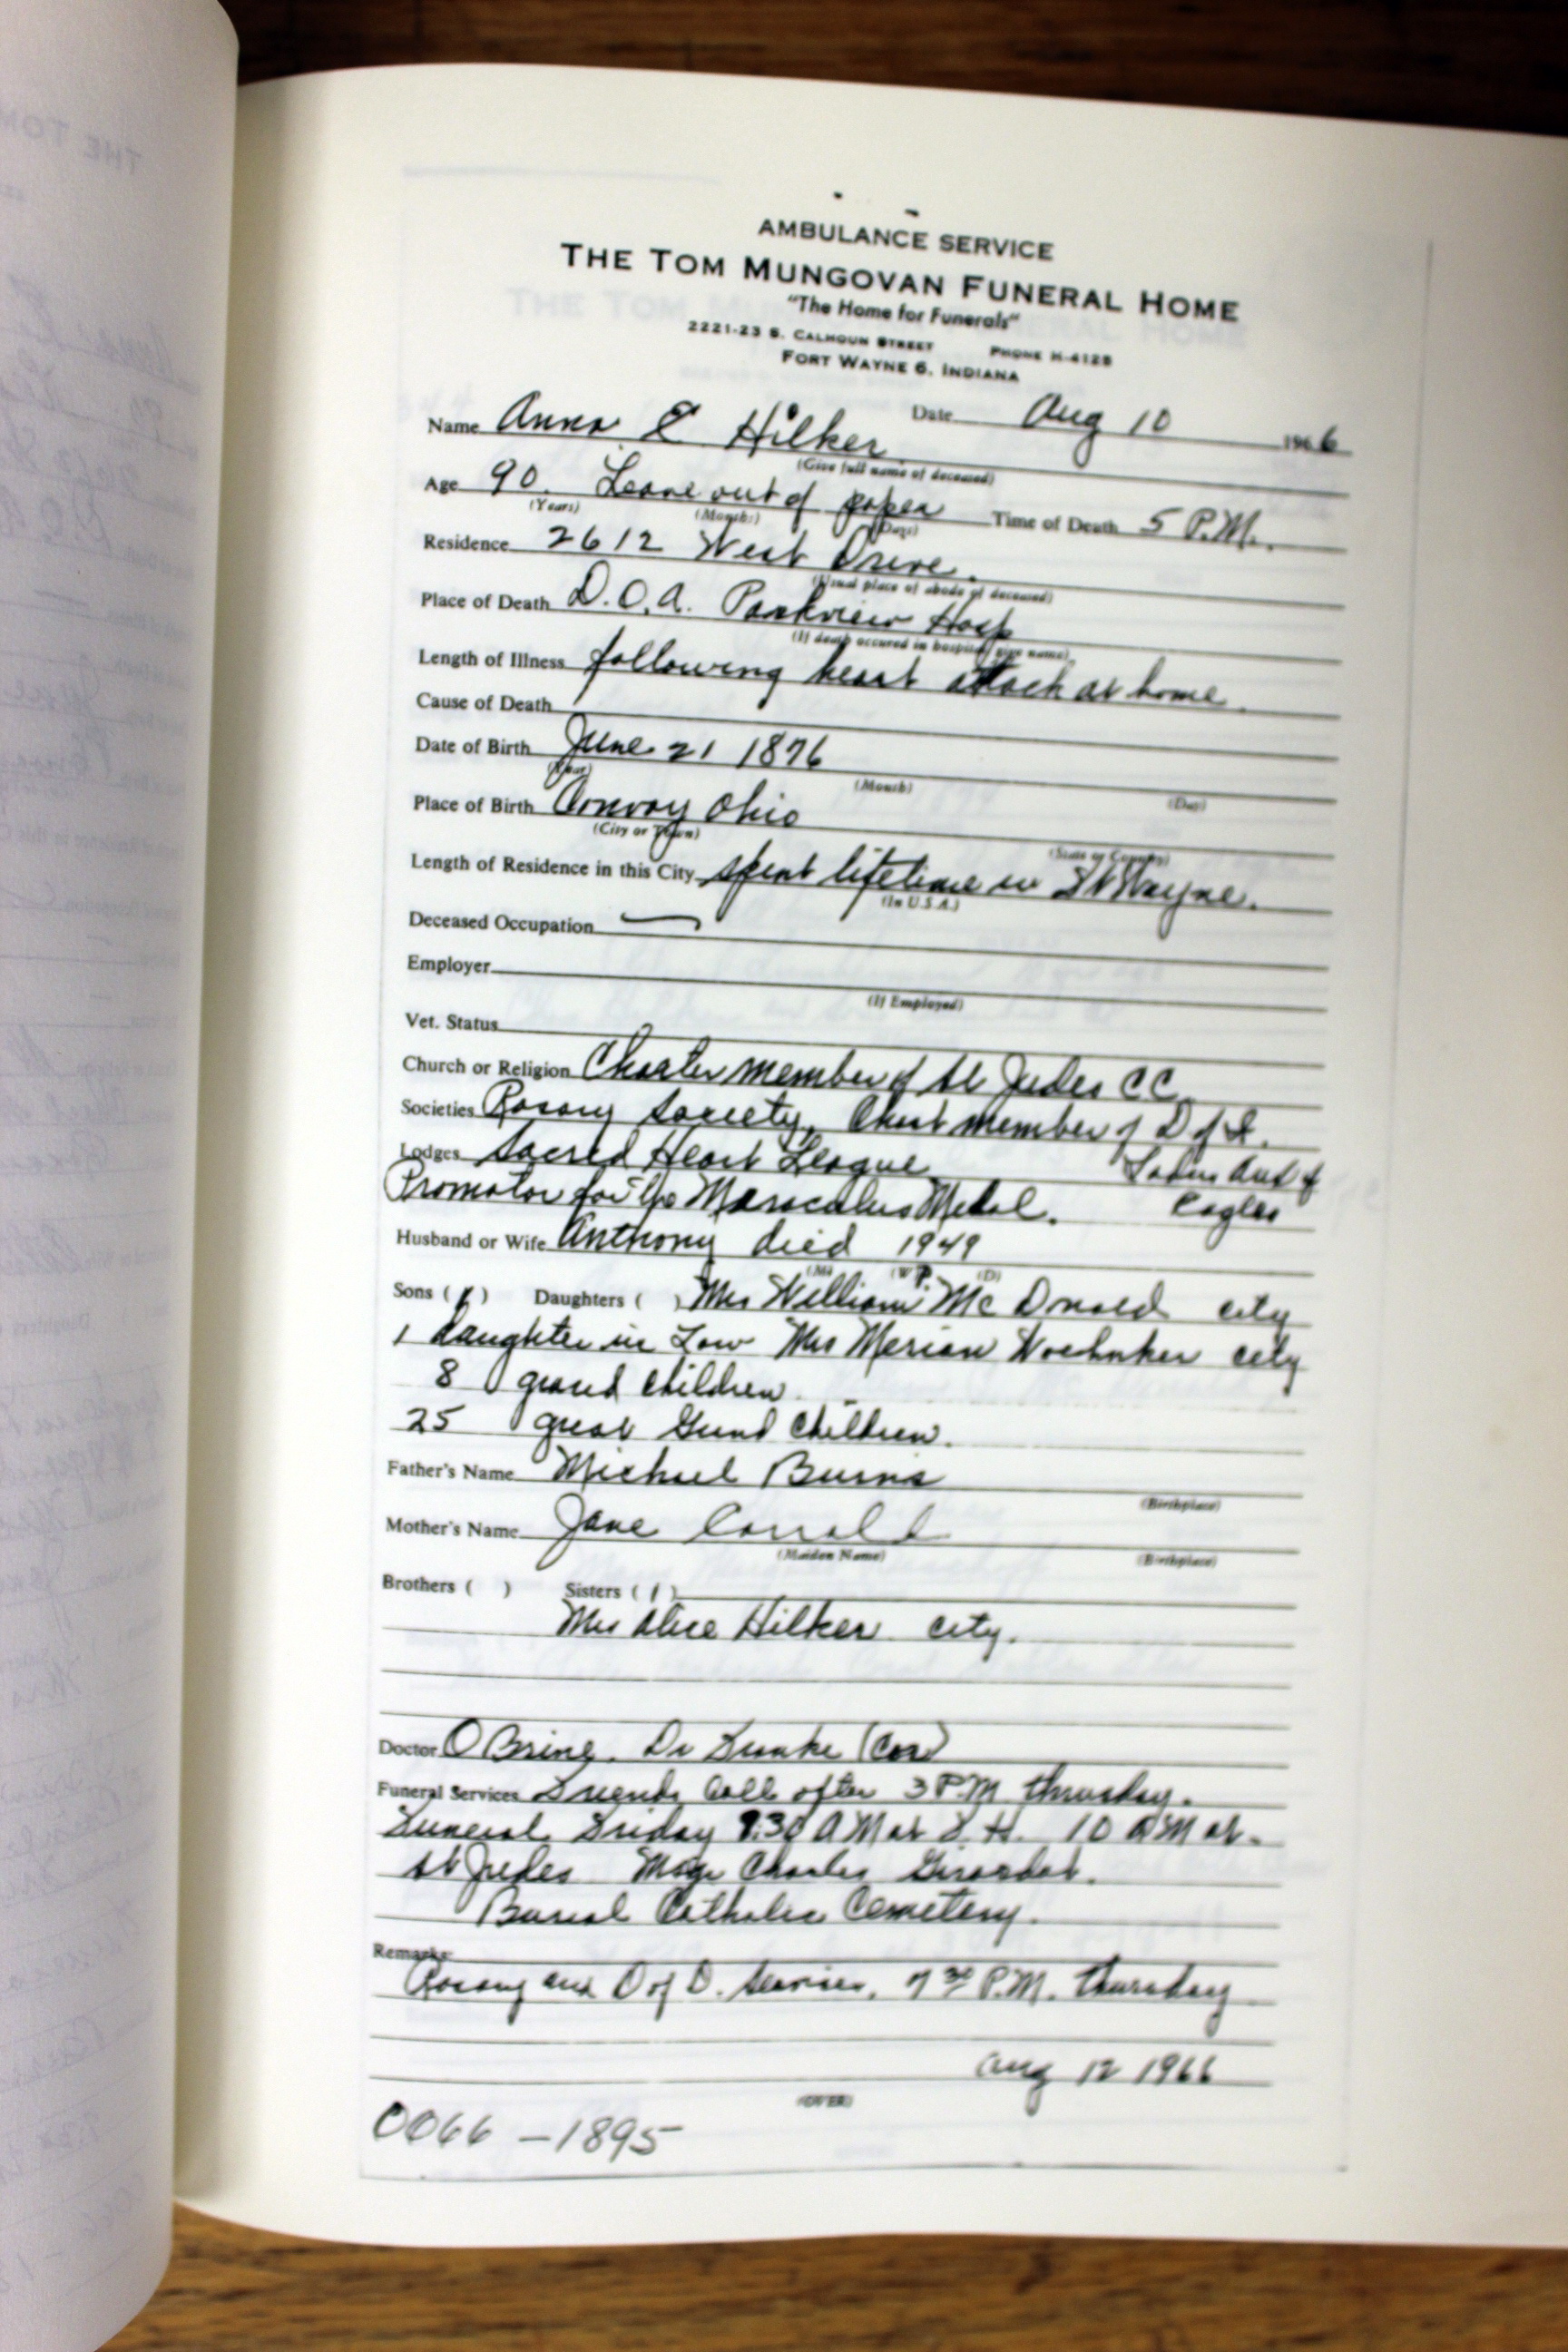 AMBULANCE SERVICE
THE TOM MUNGOVAN FUNERAL HOME
"The Home for Funerals"
2221-23 S. CALHOUN STREET PHONE H-4128
FORT WAYNE 6, INDIANA
Name Anna E Hilker Date Aug 10 1966
(Give full name of deceased)
Age 90. Leave out of paper Time of Death 5 P.M.
(Years) (Months) (Days)
Residence 2612 West Drive.
(Usual place of abode of deceased)
Place of Death D.O.A. Parkview Hosp
(If death occured in hospital, give name)
Length of Illness following heart attack at home.
Cause of Death
Date of Birth June 21 1876
(Year) (Month) (Day)
Place of Birth Convoy Ohio
(City or Town) (State or Country)
Length of Residence in this City spent lifetime in Ft Wayne.
(In U.S.A.)
Deceased Occupation —
Employer
(If Employed)
Vet. Status
Church or Religion Charter member of St Judes CC
Societies Rosary Society, Chart member of D of I.
Lodges Sacred Heart League Ladies Aux of
Promotor for the Maraculus Medal. Eagles
Husband or Wife Anthony died 1949
(M) (W) (D)
Sons ( ) Daughters ( ) Mrs William P. Mc Donald city
1 daughter in Law Mrs Merian Woehnker city
8 grand children.
25 great Grand Children.
Father's Name Michael Burns
(Birthplace)
Mother's Name Jane
(Maiden Name) (Birthplace)
Brothers ( ) Sisters ( 1 )
Mrs Alice Hilker city.
Doctor O Brine. Dr (Cor)
Funeral Services Friends Call after 3 P.M thursday.
Funeral Friday 9:30 AM at F H. 10 AM at.
St Judes Msgr Charles Girardot.
Burial Catholic Cemetery.
Remarks:
Rosary and D of D. Services, 7 30 P.M. thursday
Aug 12 1966
(OVER)
0066 - 1895